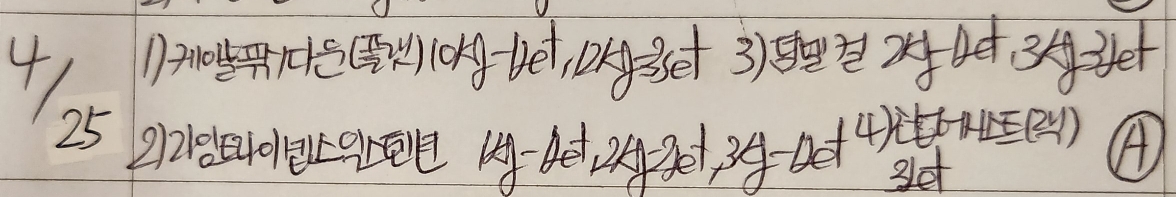 4/25 1) 케이블푸쉬다운(플랫) 10kg-1set, 12kg-3set 3) 덤벨 컬 2kg-1set, 3kg-3set
2) 라잉트라이셉스익스텐션 1kg-1set, 2kg-2set, 3kg-1set 4) (렉) Ⓐ
3set